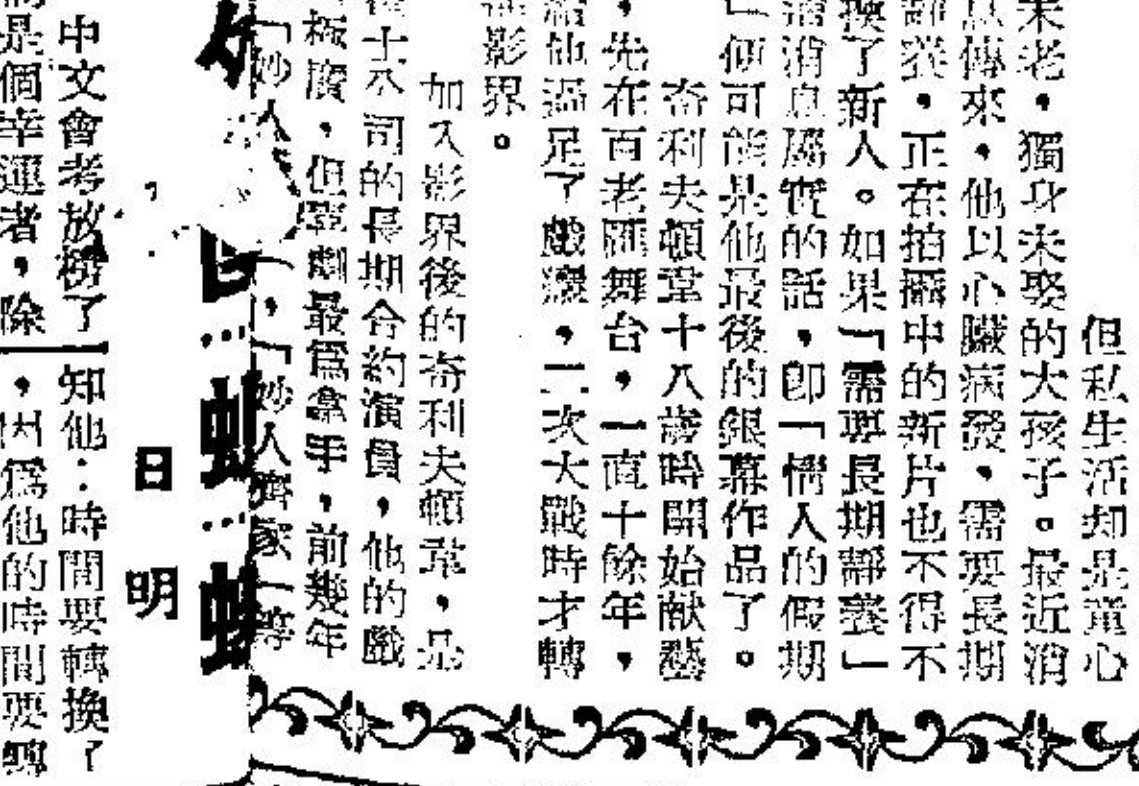 但私生活却是童心
未老，獨身未娶的大孩子。最近消
息傳來，他以心臟病發，需要長期
靜養，正在拍攝中的新片也不得不
換了新人。如果「需要長期靜養」
消息屬實的話，卽「情人的假期
」便可能是他最後的銀幕作品了。
奇利夫頓韋十八歲時開始献藝
，先在百老匯舞台，一直十餘年，
他過足了戲癮，二次大戰時才轉
影界。
加入影界後的奇利夫頓韋，是
霍士公司的長期合約演員，他的戲
極廣，但喜劇最爲拿手，前幾年
「妙人」，「妙人齊家」等
日明
中文會考放榜了 知他：時間要轉換了
是個幸運者，除 ，因爲他的時間要轉